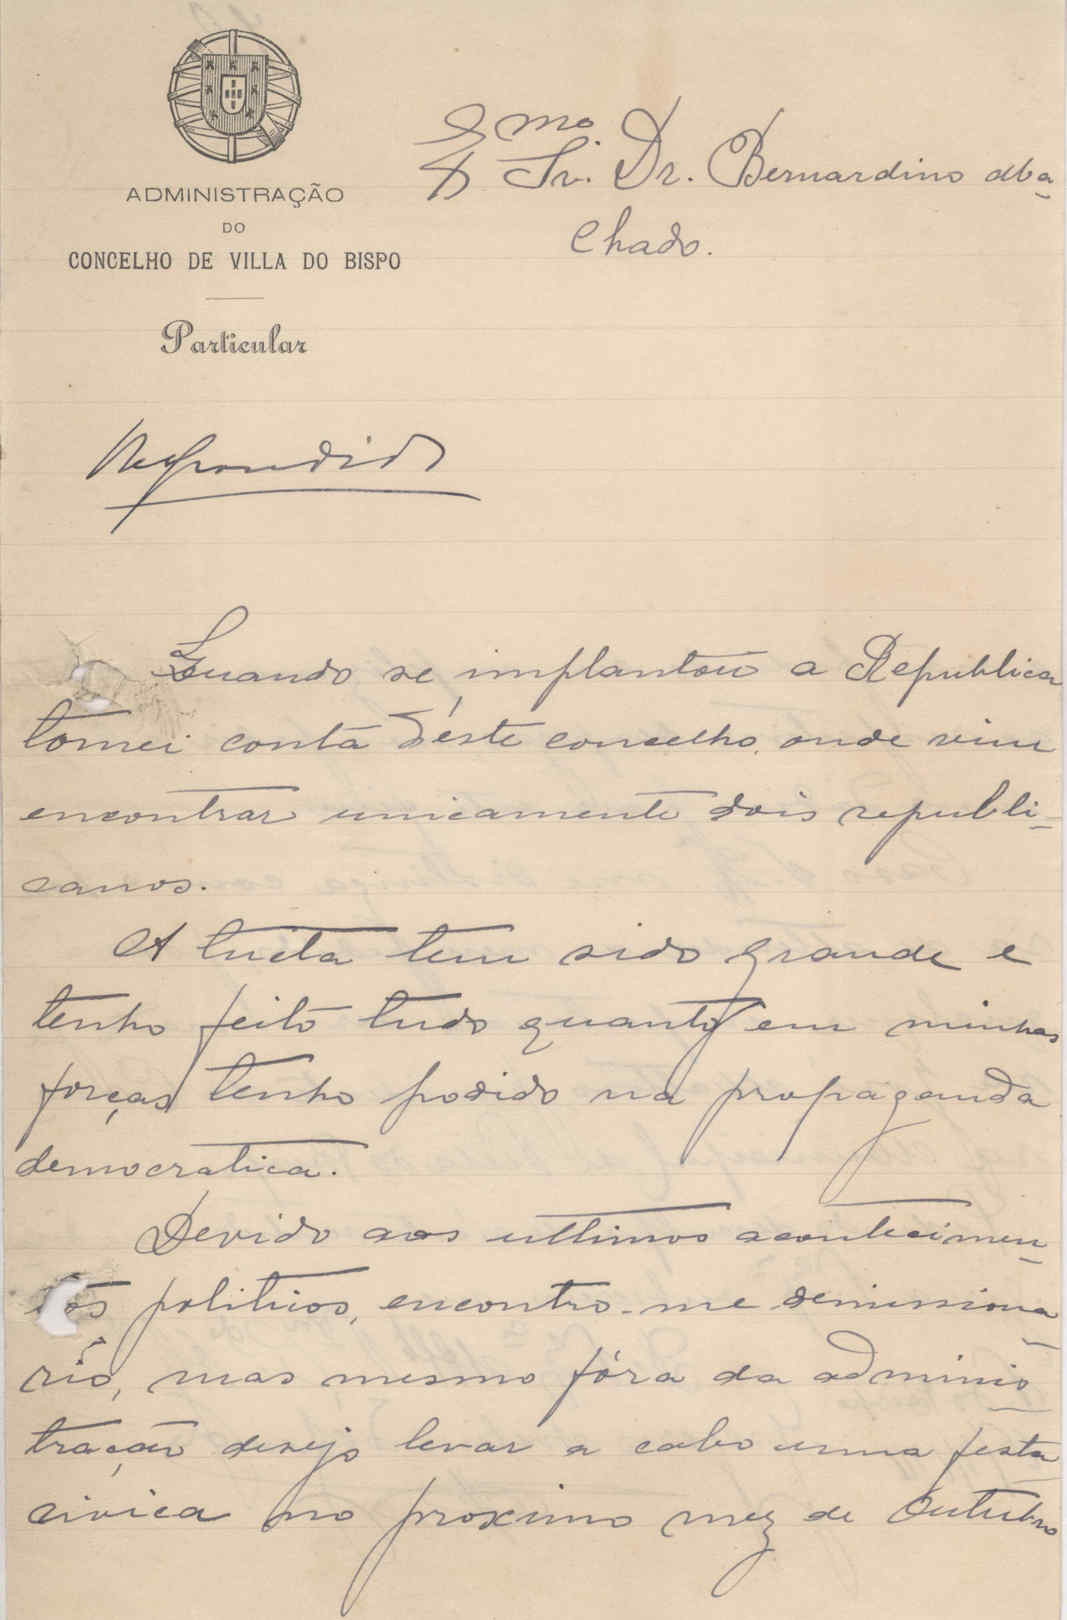 ADMINISTRAÇÃO
DO
CONCELHO DE VILLA DO BISPO
Particular
Exmo Sr. Dr. Bernardino Ma-
chado.
Respondido
Quando se implantou a Republica
tomei conta d'éste concelho, onde vim
encontrar unicamente dois republi-
canos.
A lucta tem sido grande e
tenho feito tudo quanto em minhas
forças tenho podido na propaganda
democratica.
Devido aos ultimos acontecimen-
tos politicos, encontro-me demissiona-
rio, mas mesmo fóra da adminis-
tração desejo levar a cabo uma festa
civica no proximo mez de Outubro